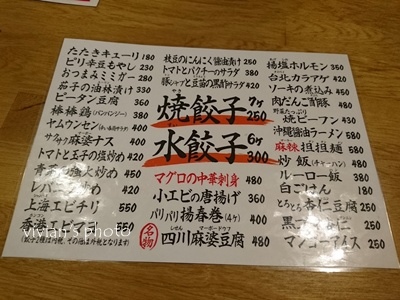 たたきキューリ 180
ピリ辛豆もやし 230
おつまみミミガー 280
茄子の油林漬け 380
ピータン豆腐 360
棒棒鶏(バンバンジー) 380
ヤムウンセン 400
サクサク麻婆ナス 400
トマトと玉子の塩炒め 440
青菜の強火炒め 450
レバニラ炒め 440
上海エビチリ 550
香港エビチリ 550
枝豆のにんにく醤油漬け 280
トマトとパクチーのサラダ 380
豚シャブと豆苗の黒酢サラダ 380
焼餃子 7ヶ 250
水餃子 6ヶ 300
マグロの中華刺身 480
小エビの唐揚げ 360
パリパリ揚春巻(4ヶ) 400
名物 四川麻婆豆腐 480
しせん マーボードウフ
揚塩ホルモン 350
台北カラアゲ 420
ソーキの煮込み 450
肉だんご酢豚 480
野菜たっぷり
焼ビーフン 450
沖縄醤油ラーメン 580
麻辣担担麺 580
炒飯(チャーハン) 480
ルーロー飯 350
白ごはん 180
とろとろ杏仁豆腐 250
マンゴーアイス 250
vivian's photo